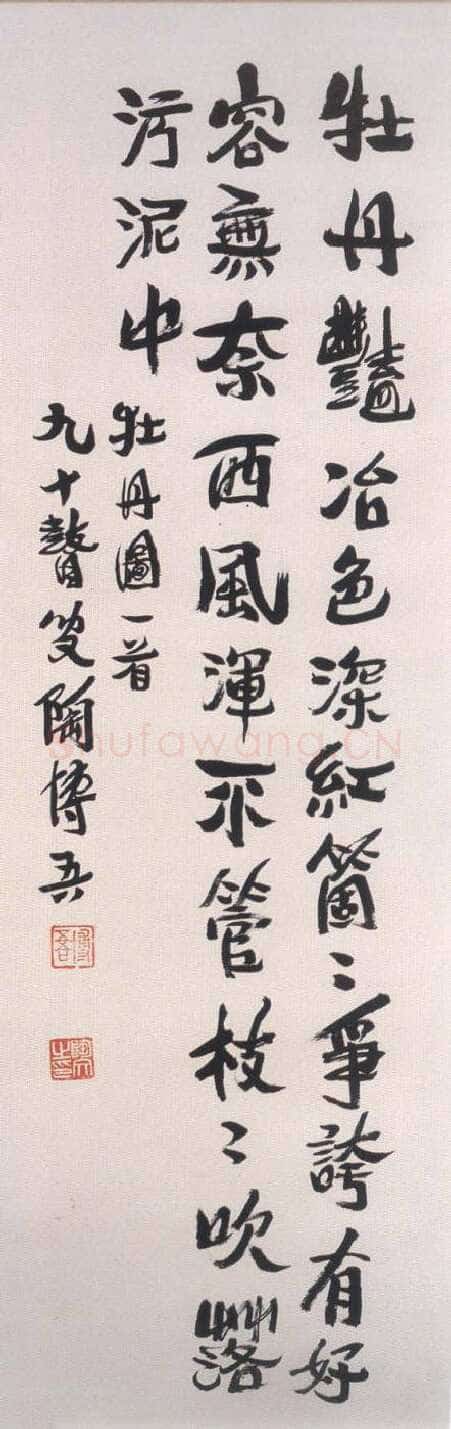 牡丹豔冶色深紅箇〻爭誇有好
容無奈西風渾不管枝〻吹落
污泥中
牡丹圖一首
九十瞽叟陶博吾
shufawang.CN